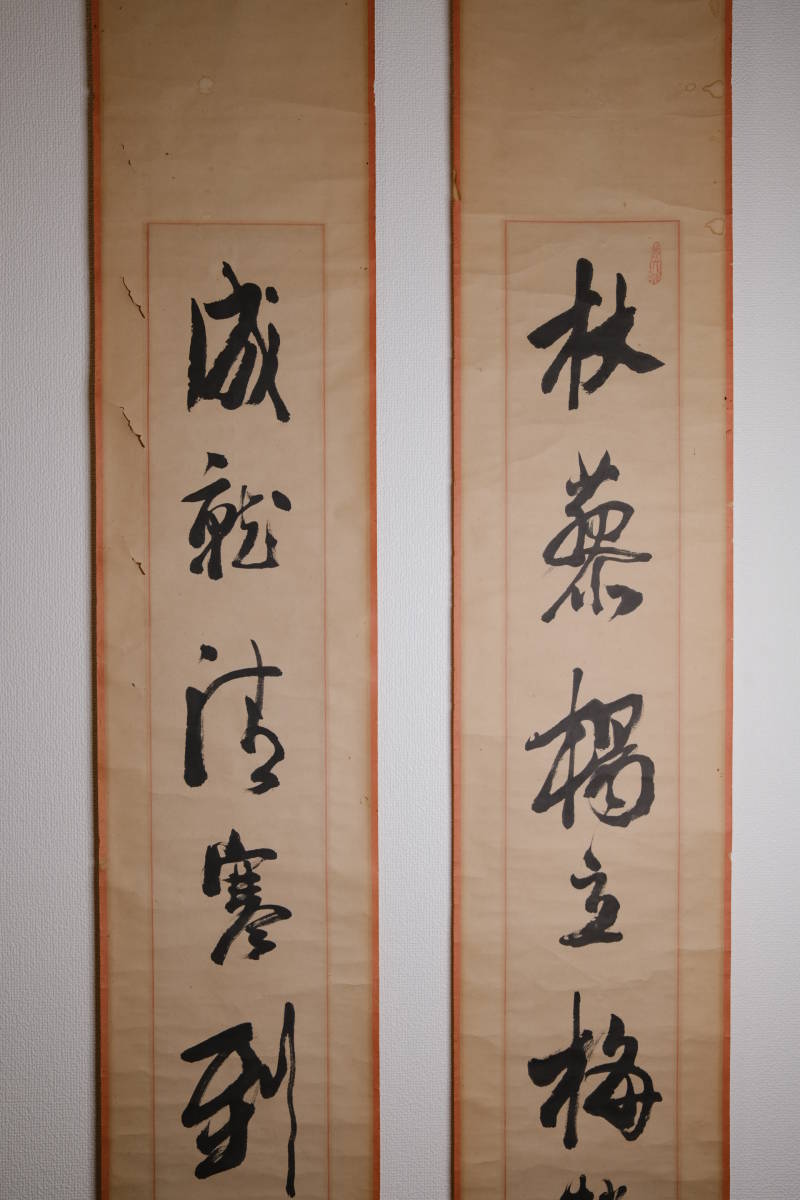 杖藜獨立梅
成就清寒到